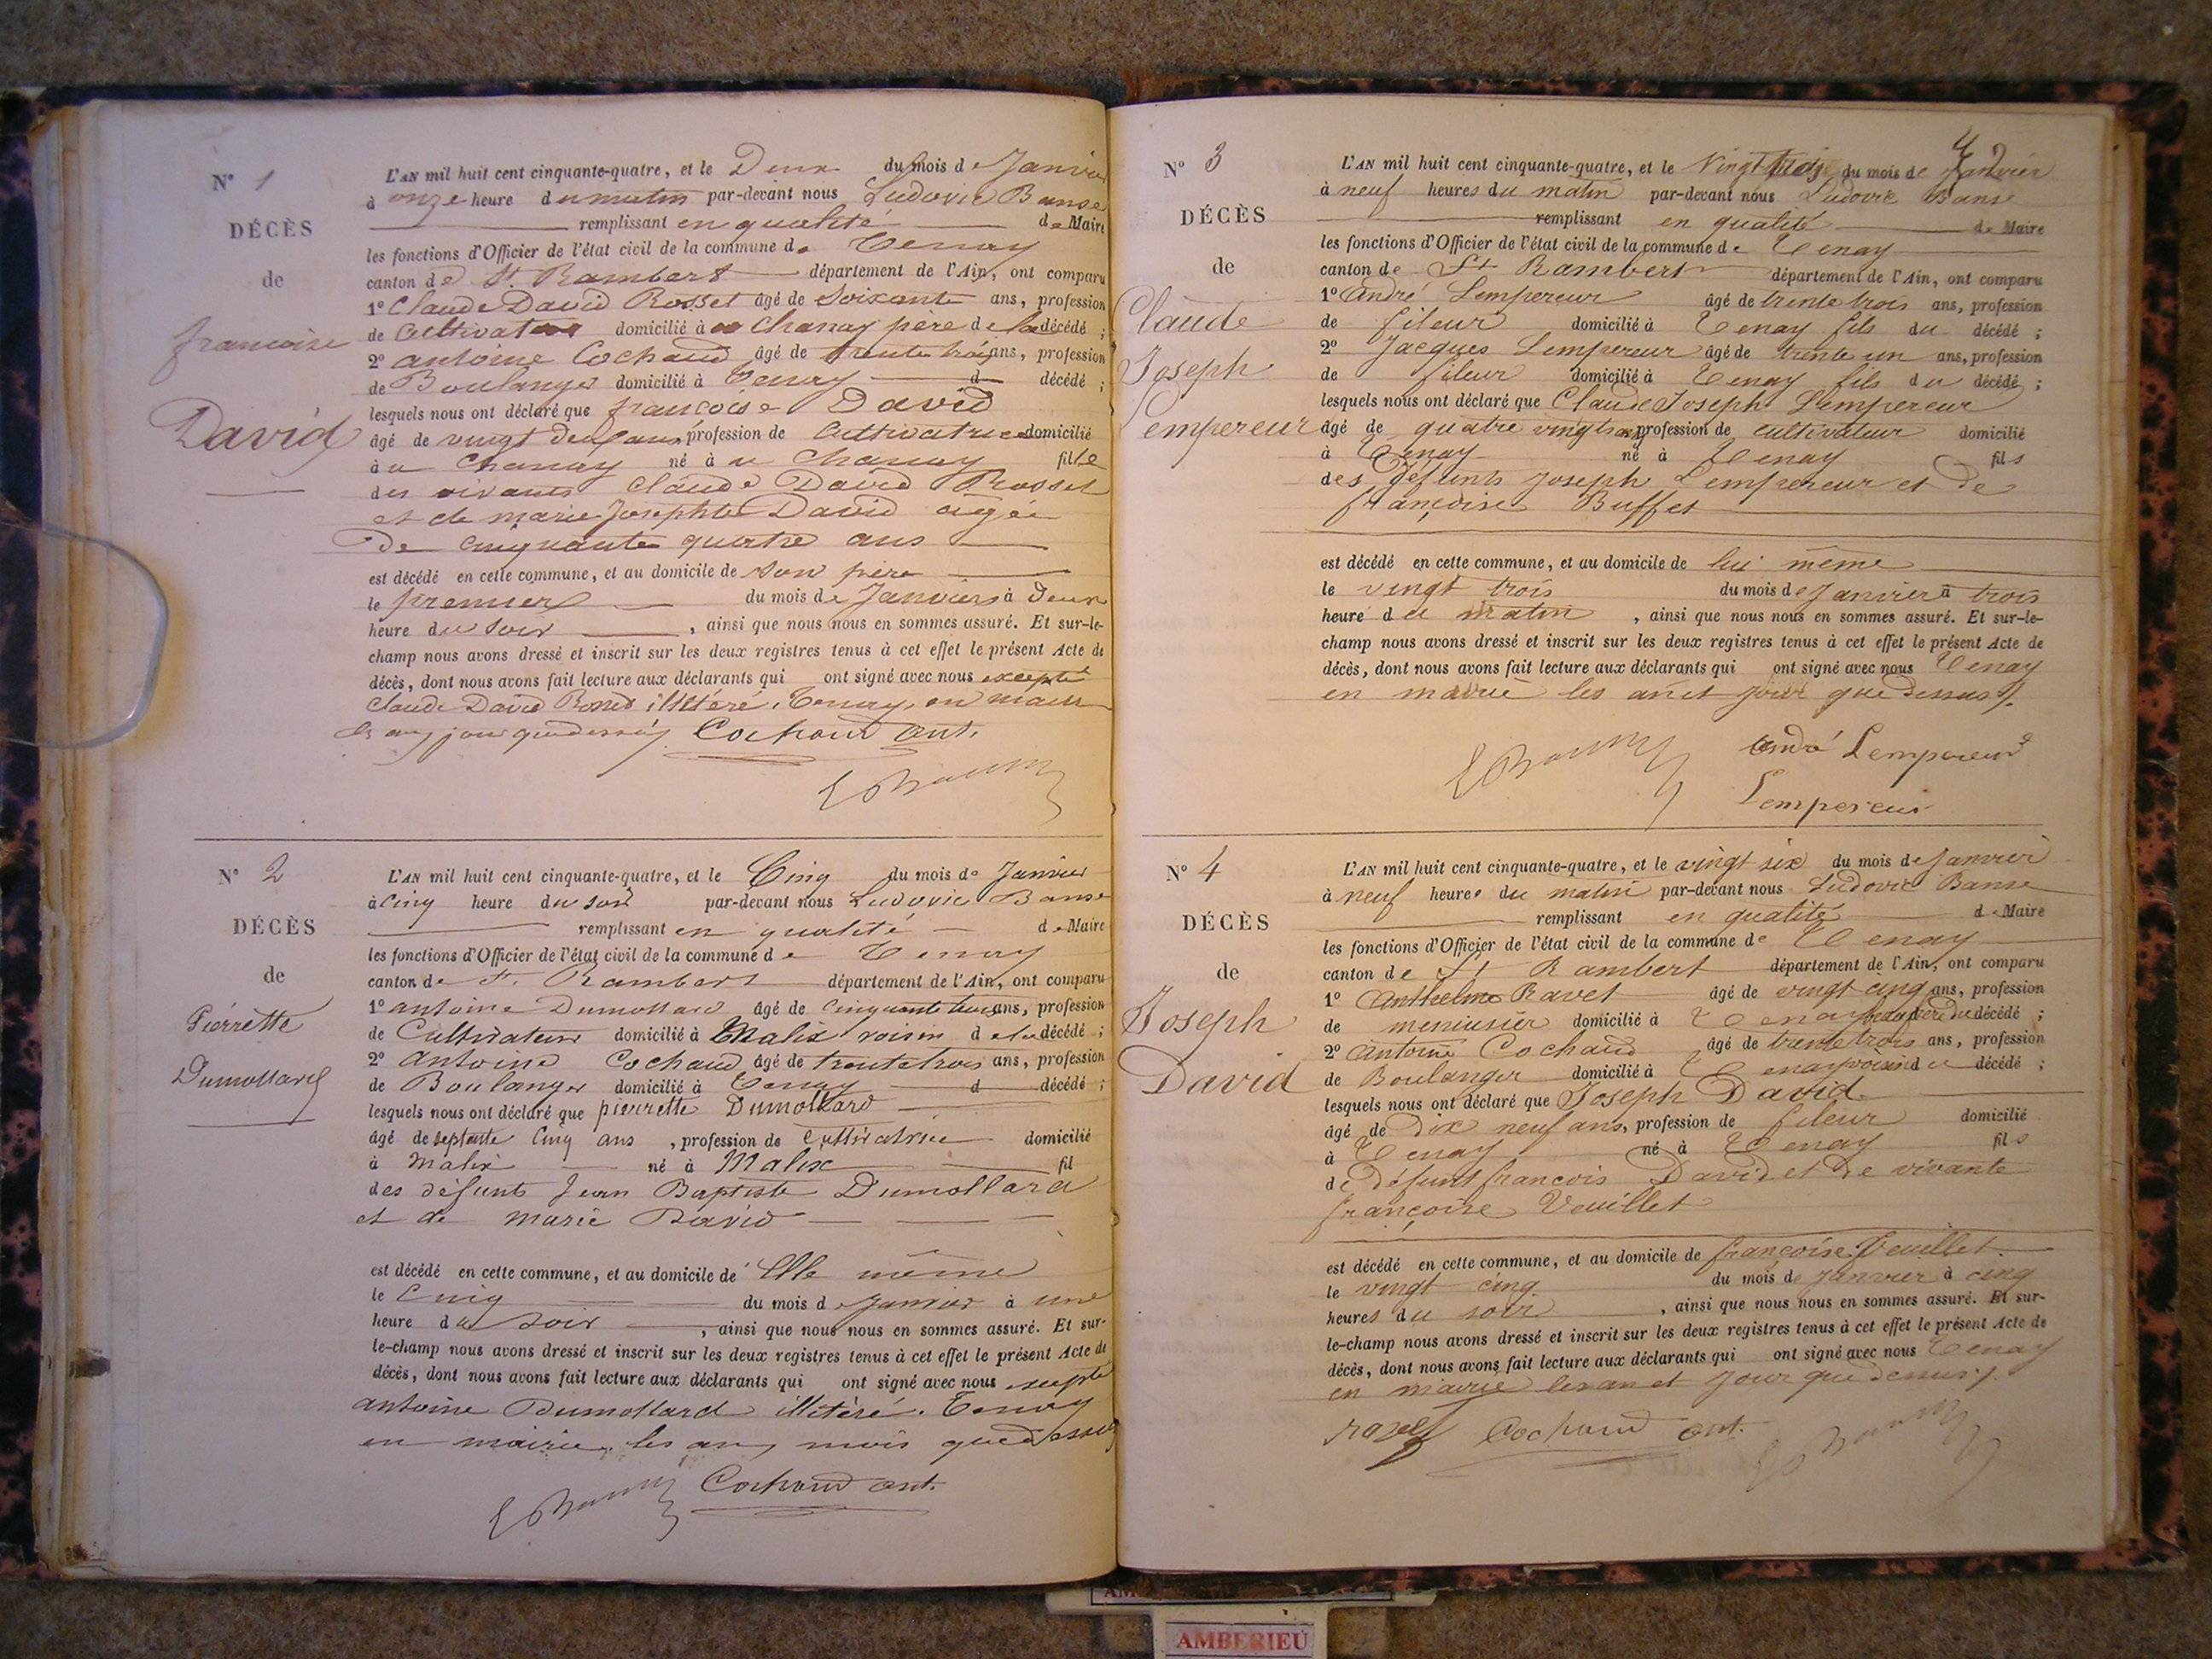 N° 1
DÉCÈS
de
françoise
David
L'AN mil huit cent cinquante-quatre, et le Deux du mois de Janvier
à onze heure du matin par-devant nous Ludovic Banse
remplissant en qualité de Maire
les fonctions d'Officier de l'état civil de la commune de Tenay
canton de St. Rambert département de l'Ain, ont comparu
1° Claude David Rosset âgé de Soixante ans, profession
de Cultivateur domicilié à Chanay père de la décédé ;
2° antoine Cochaud âgé de trente trois ans, profession
de Boulanger domicilié à Tenay d décédé ;
lesquels nous ont déclaré que françoise David
âgé de vingt deux ans profession de Cultivatrice domicilié
à u Chanay né à u Chanay fille
des vivants Claude David Rosset
et de marie Josephte David âgée
De cinquante quatre ans
est décédé en cette commune, et au domicile de son père
le premier du mois de Janvier à Deux
heure du soir , ainsi que nous nous en sommes assuré. Et sur-le-
champ nous avons dressé et inscrit sur les deux registres tenus à cet effet le présent Acte de
décès, dont nous avons fait lecture aux déclarants qui ont signé avec nous excepté
Claude David illitéré. Tenay, en mairie
les an, jour que dessus Cochaud ant.
N° 2
DÉCÈS
de
Pierrette
Dumollard
L'AN mil huit cent cinquante-quatre, et le Cinq du mois de Janvier
à cinq heure du soir par-devant nous Ludovic Banse
remplissant en qualité de Maire
les fonctions d'Officier de l'état civil de la commune de Tenay
canton de St. Rambert département de l'Ain, ont comparu
1° antoine Dumollard âgé de cinquante ans, profession
de Cultivateur domicilié à Malix voisin de la décédé ;
2° antoine Cochaud âgé de trente trois ans, profession
de Boulanger domicilié à Tenay d décédé ;
lesquels nous ont déclaré que pierrette Dumollard
âgé de septante cinq ans , profession de Cultivatrice domicilié
à Malix né à Malix fil
des défunts Jean Baptiste Dumollard
et de marie David
est décédé en cette commune, et au domicile de Elle même
le Cinq du mois de Janvier à une
heure du soir , ainsi que nous nous en sommes assuré. Et sur-
le-champ nous avons dressé et inscrit sur les deux registres tenus à cet effet le présent Acte de
décès, dont nous avons fait lecture aux déclarants qui ont signé avec nous excepté
antoine Dumollard illitéré. Tenay
en mairie les an, mois que dessus
Cochaud ant.
N° 3
DÉCÈS
de
Claude
Joseph
Lempereur
L'AN mil huit cent cinquante-quatre, et le Vingt trois du mois de Janvier
à neuf heures du matin par-devant nous Ludovic Banse
remplissant en qualité de Maire
les fonctions d'Officier de l'état civil de la commune de Tenay
canton de St Rambert département de l'Ain, ont comparu
1° André Lempereur âgé de trente trois ans, profession
de fileur domicilié à Tenay fils du décédé ;
2° Jacques Lempereur âgé de trente un ans, profession
de fileur domicilié à Tenay fils du décédé ;
lesquels nous ont déclaré que Claude Joseph Lempereur
âgé de quatre vingts ans profession de cultivateur domicilié
à Tenay né à Tenay fils
des défunts Joseph Lempereur et de
françoise Buffet
est décédé en cette commune, et au domicile de lui même
le vingt trois du mois de Janvier à trois
heure du matin , ainsi que nous nous en sommes assuré. Et sur-le-
champ nous avons dressé et inscrit sur les deux registres tenus à cet effet le présent Acte de
décès, dont nous avons fait lecture aux déclarants qui ont signé avec nous Tenay
en mairie les an et jour que dessus
André Lempereur
Lempereur
N° 4
DÉCÈS
de
Joseph
David
L'AN mil huit cent cinquante-quatre, et le vingt six du mois de Janvier
à neuf heures du matin par-devant nous Ludovic Banse
remplissant en qualité de Maire
les fonctions d'Officier de l'état civil de la commune de Tenay
canton de St Rambert département de l'Ain, ont comparu
1° Anthelme Ravet âgé de vingt cinq ans, profession
de meniusier domicilié à Tenay beau frère du décédé ;
2° Antoine Cochaud âgé de trente trois ans, profession
de Boulanger domicilié à Tenay voisin du décédé ;
lesquels nous ont déclaré que Joseph David
âgé de Dix neuf ans, profession de fileur domicilié
à Tenay né à Tenay fils
de défunt françois David et de vivante
françoise Vouillet
est décédé en cette commune, et au domicile de françoise Vouillet.
le vingt cinq du mois de Janvier à cinq
heures du soir , ainsi que nous nous en sommes assuré. Et sur-
le-champ nous avons dressé et inscrit sur les deux registres tenus à cet effet le présent Acte de
décès, dont nous avons fait lecture aux déclarants qui ont signé avec nous Tenay
en mairie les an et jour que dessus
Cochaud ant.
AMBERIEU